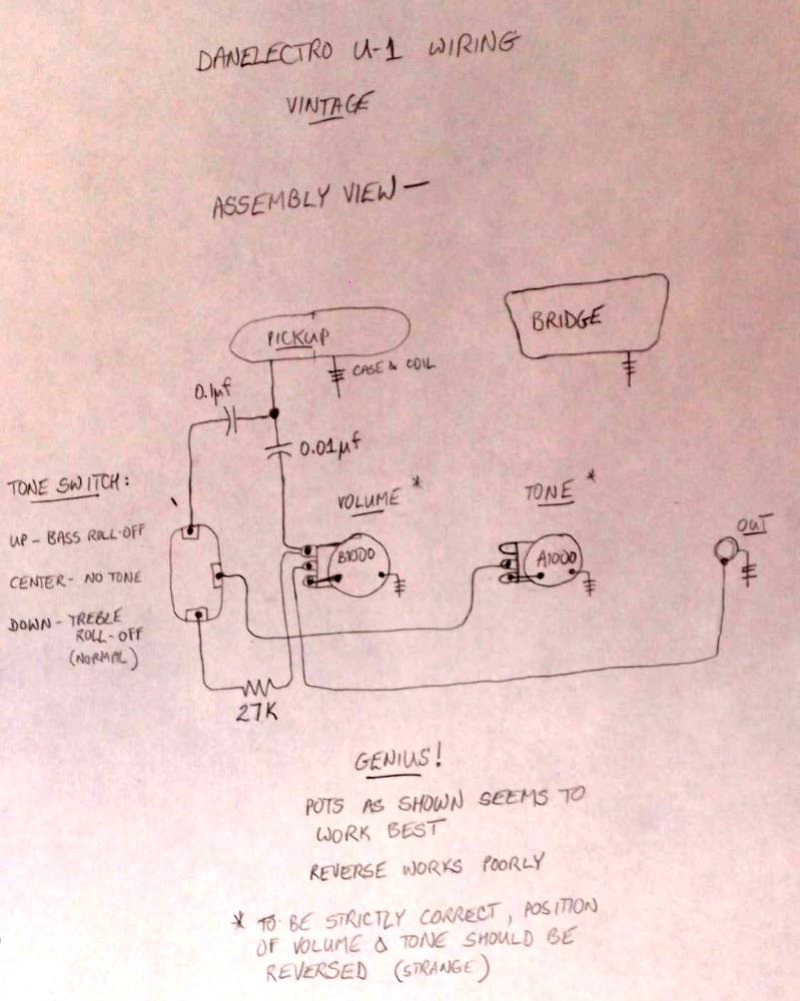 DANELECTRO U-1 WIRING
VINTAGE
ASSEMBLY VIEW —
PICKUP
BRIDGE
CASE & COIL
0.1µf
0.01µf
TONE SWITCH:
UP - BASS ROLL-OFF
CENTER - NO TONE
DOWN - TREBLE
ROLL-OFF
(NORMAL)
VOLUME *
B1000
TONE *
A1000
OUT
27K
GENIUS!
POTS AS SHOWN SEEMS TO
WORK BEST
REVERSE WORKS POORLY
* TO BE STRICTLY CORRECT, POSITION
OF VOLUME & TONE SHOULD BE
REVERSED (STRANGE)